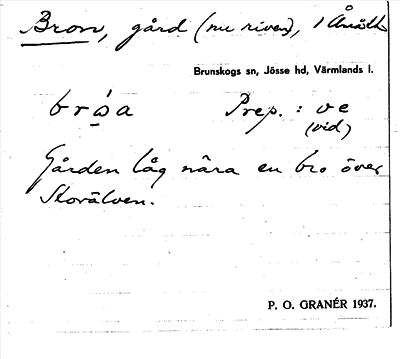 Bron, gård (nu riven), i
Brunskogs sn, Jösse hd, Värmlands l.
Prep. : ve
(vid)
Gården låg nära en bro över
Storälven.
P. O. GRANÉR 1937.